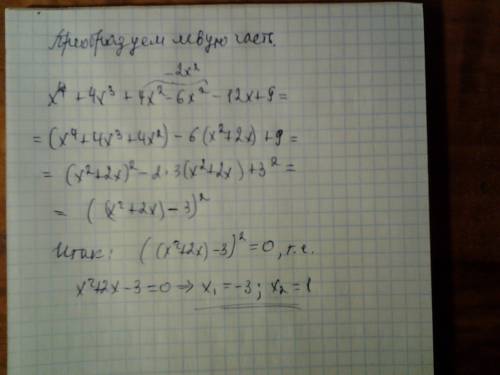 Преобразуем левую часть.
-2x²
x⁴ + 4x³ + 4x² - 6x² - 12x + 9 =
= (x⁴ + 4x³ + 4x²) - 6(x² + 2x) + 9 =
= (x² + 2x)² - 2·3(x² + 2x) + 3² =
= ((x² + 2x) - 3)²
Итак: ((x² + 2x) - 3)² = 0, т.е.
x² + 2x - 3 = 0 ⇒ x₁ = -3; x₂ = 1